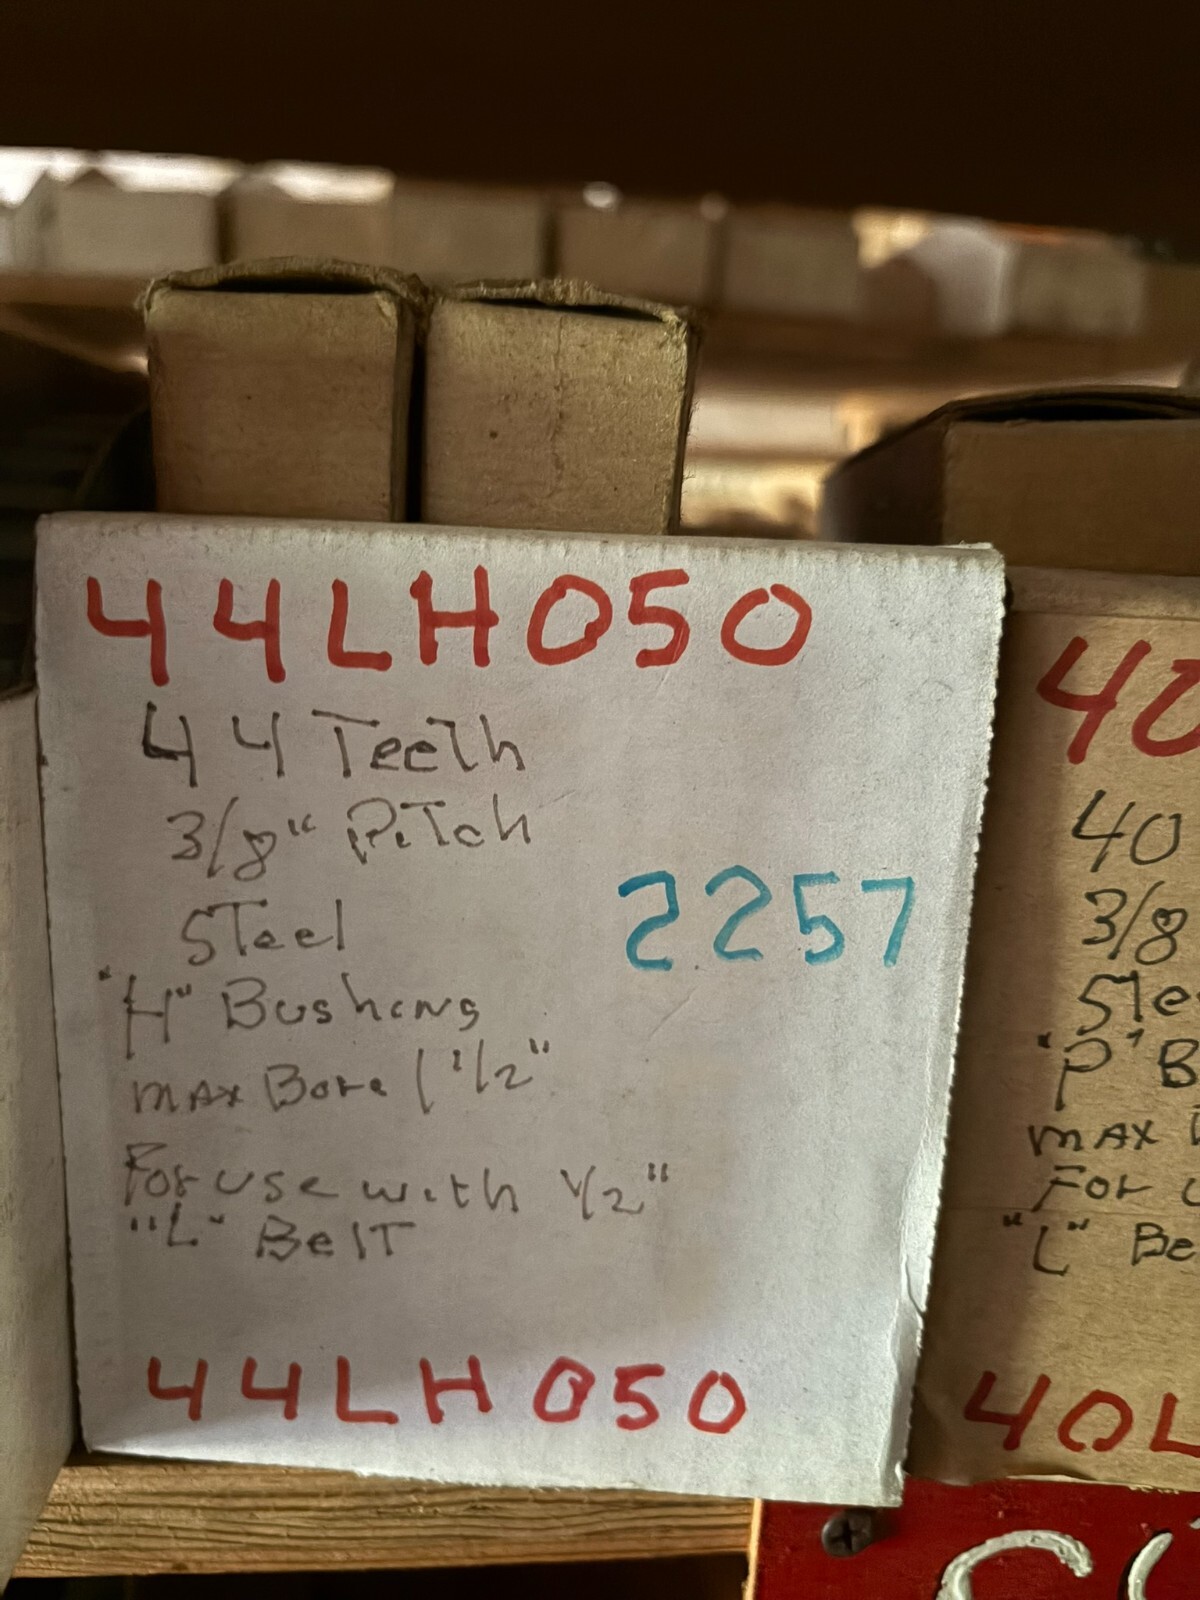 44LH050
44 Teeth
3/8" Pitch
Steel
2257
"H" Bushing
max Bore 1 1/2"
For use with 1/2"
"L" Belt
44LH050
40
40
3/8
Ste
"P" B
max
For
"L" Be
40L